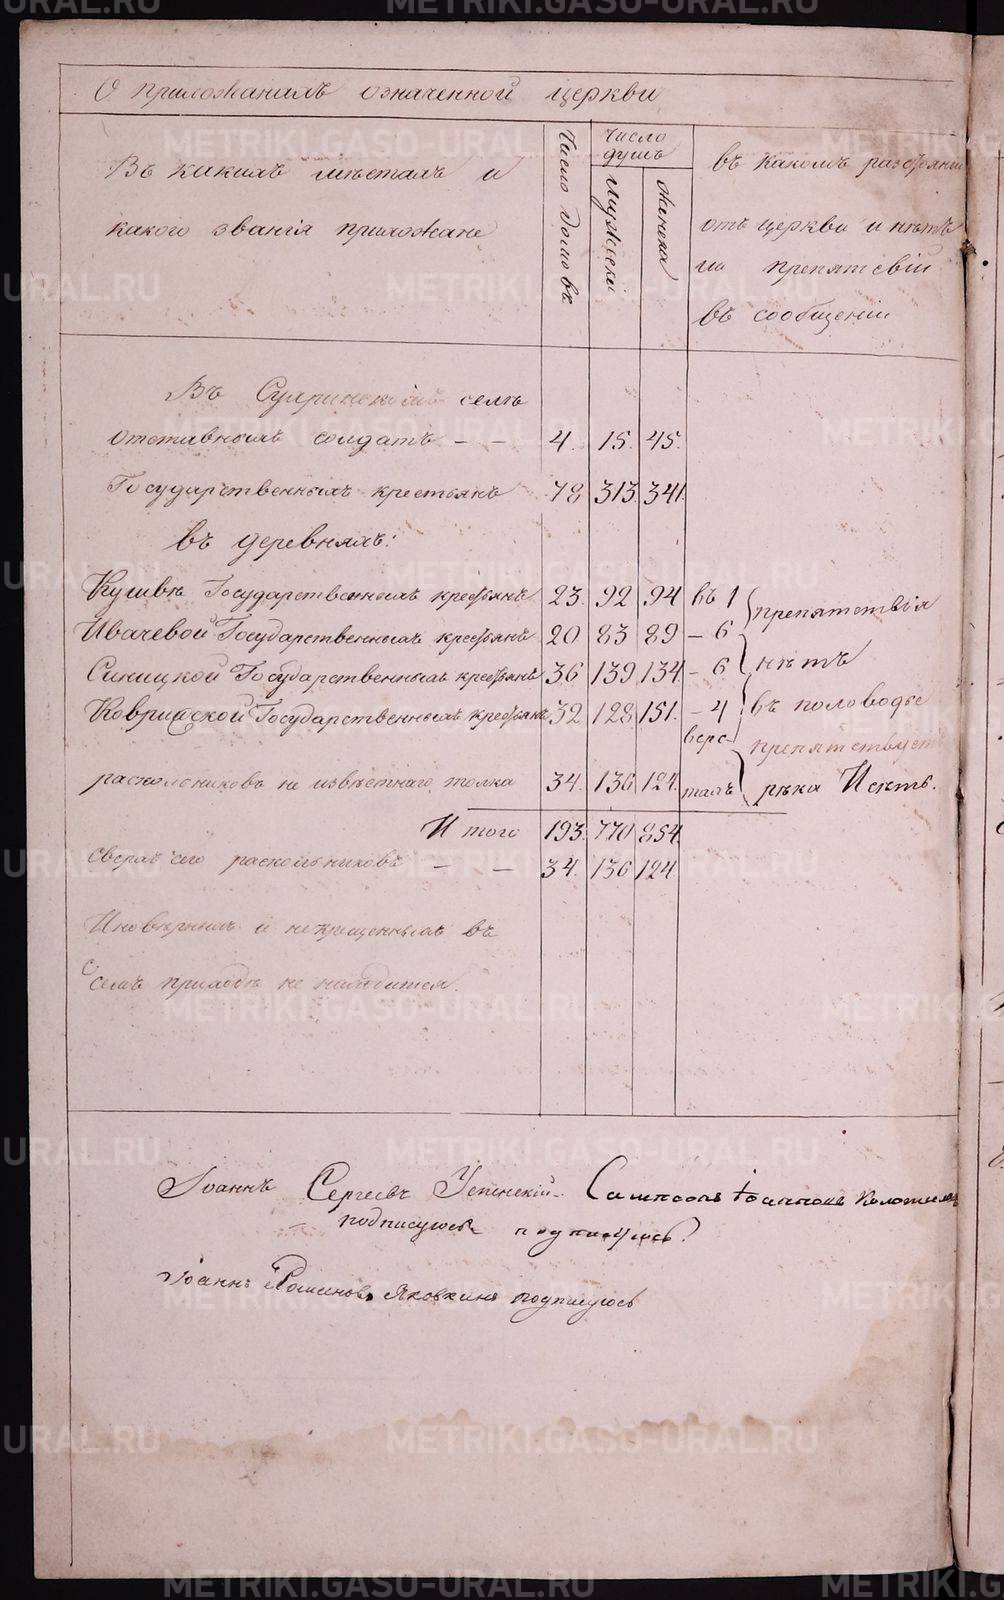 О прихожанахъ означенной церкви
Въ какихъ мѣстахъ и
какого званія прихожане
Число домовъ
Число
душъ
мужеска
женска
въ какомъ разстояніи
отъ церкви и нѣтъ
ли препятсвій
въ сообщеніи
Въ селѣ
отставныхъ солдатъ - - 4. 15. 45.
Государственныхъ крестьянъ 78 313. 341.
въ деревняхъ:
Государственныхъ крестьянъ 23. 92 94 въ 1
Ивачевой Государственныхъ крестьянъ 20 83 89 - 6
Синицкой Государственныхъ крестьянъ 36 139 134 - 6
Ковригской Государственныхъ крестьянъ 32 128 151. - 4
верс-
тахъ
препятствія
нѣтъ
въ половодье
препятствуетъ
рѣка Исеть.
раскольниковъ не извѣстнаго толка 34. 136 124.
Итого 193. 770 854.
сверхъ сего раскольниковъ - - 34. 136 124.
Иновѣрныхъ и некрещенныхъ въ
семъ приходѣ не находится.
Іоаннъ Сергеевъ Успенскій
подписуюсь
Сампсонъ Іоанновъ
подписуюсь.
Іоаннъ Романовъ Яковкинъ подписуюсь
METRIKI.GASO-URAL.RU